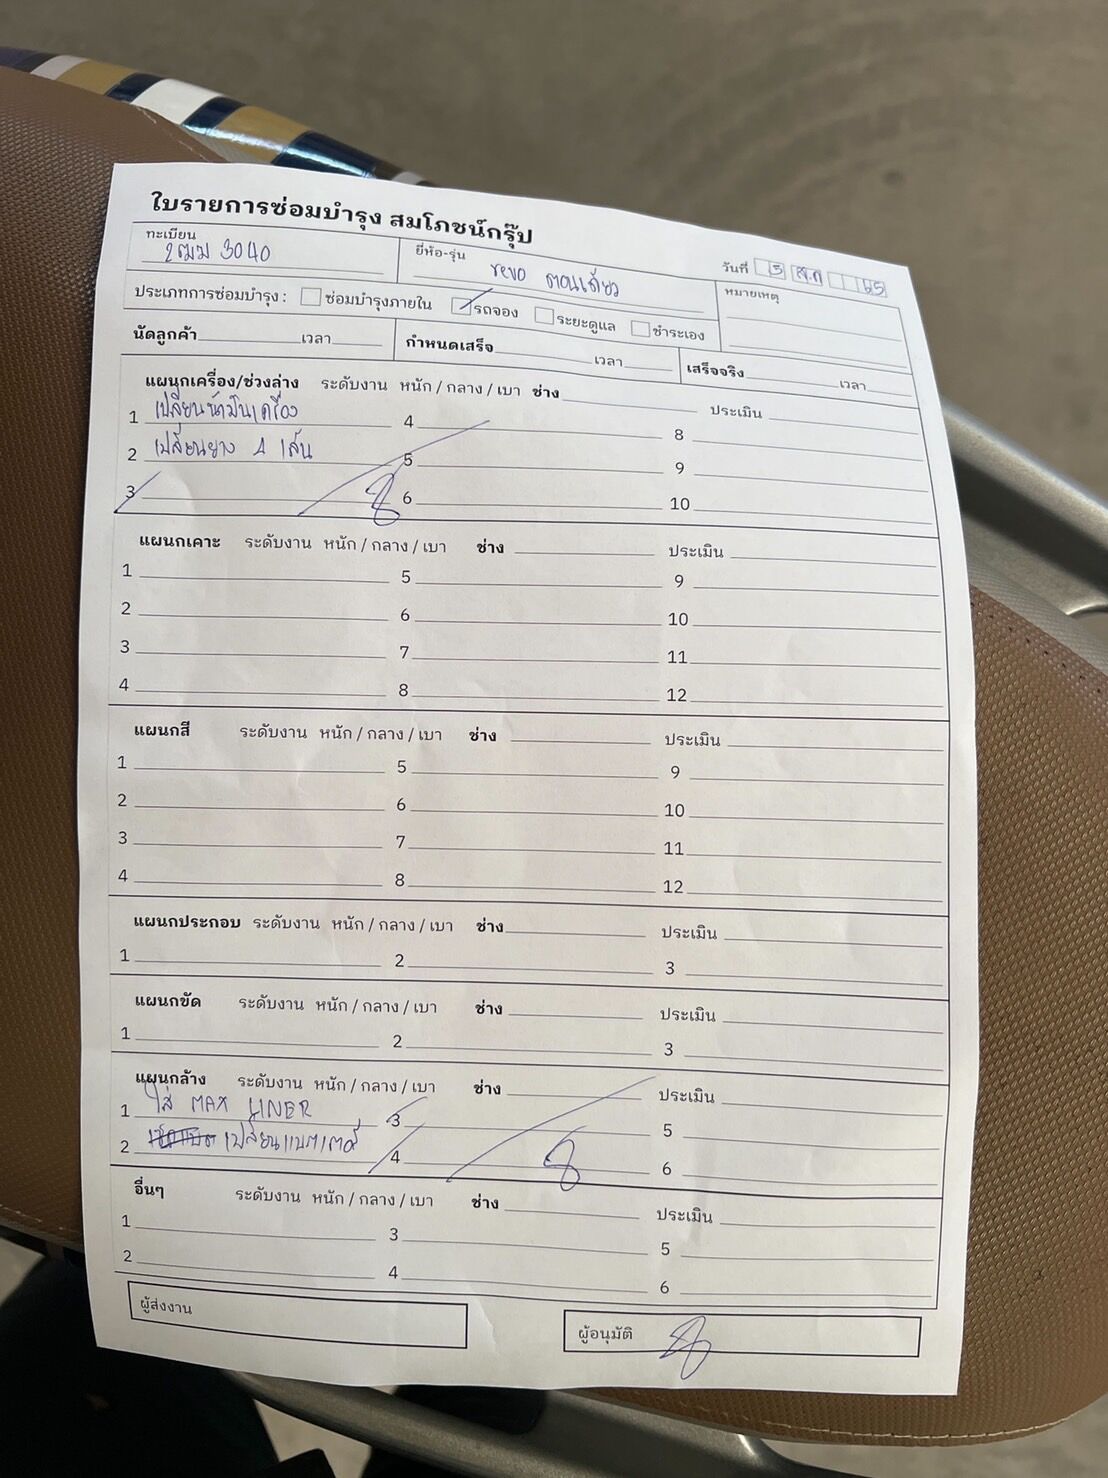 ใบรายการซ่อมบำรุง สมโภชน์กรุ๊ป
ทะเบียน 2ฒฒ 3040 ยี่ห้อ-รุ่น revo ตอนเดียว วันที่ 15 65
หมายเหตุ
ประเภทการซ่อมบำรุง : ซ่อมบำรุงภายใน รถจอง ระยะดูแล ชำระเอง
นัดลูกค้า เวลา กำหนดเสร็จ เวลา เสร็จจริง เวลา
แผนกเครื่อง/ช่วงล่าง ระดับงาน หนัก / กลาง / เบา ช่าง ประเมิน
1 เปลี่ยนน้ำมันเครื่อง 4 8
2 เปลี่ยนยาง 4 เส้น 5 9
3 6 10
แผนกเคาะ ระดับงาน หนัก / กลาง / เบา ช่าง ประเมิน
1 5 9
2 6 10
3 7 11
4 8 12
แผนกสี ระดับงาน หนัก / กลาง / เบา ช่าง ประเมิน
1 5 9
2 6 10
3 7 11
4 8 12
แผนกประกอบ ระดับงาน หนัก / กลาง / เบา ช่าง ประเมิน
1 2 3
แผนกขัด ระดับงาน หนัก / กลาง / เบา ช่าง ประเมิน
1 2 3
แผนกล้าง ระดับงาน หนัก / กลาง / เบา ช่าง ประเมิน
1 ใส่ MAX LINER 3 5
2 เปลี่ยนแบตเตอรี่ 4 6
อื่นๆ ระดับงาน หนัก / กลาง / เบา ช่าง ประเมิน
1 3 5
2 4 6
ผู้ส่งงาน ผู้อนุมัติ